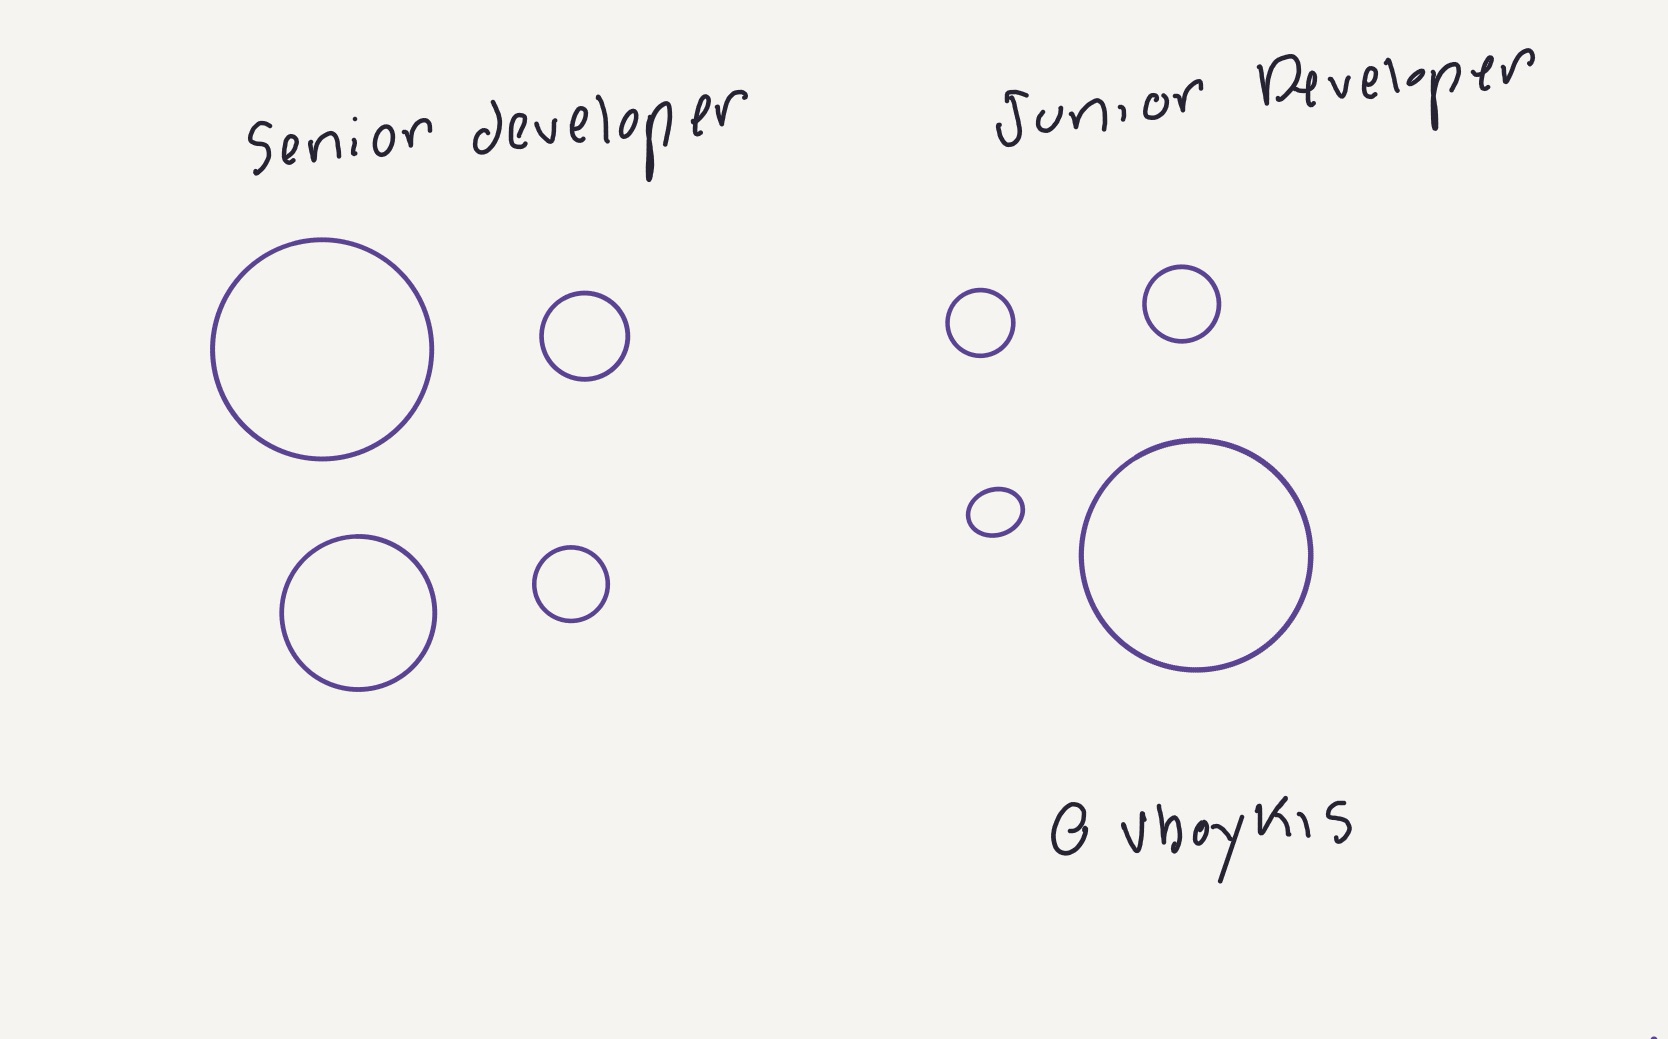 Senior developer
Junior Developer
@vboykis